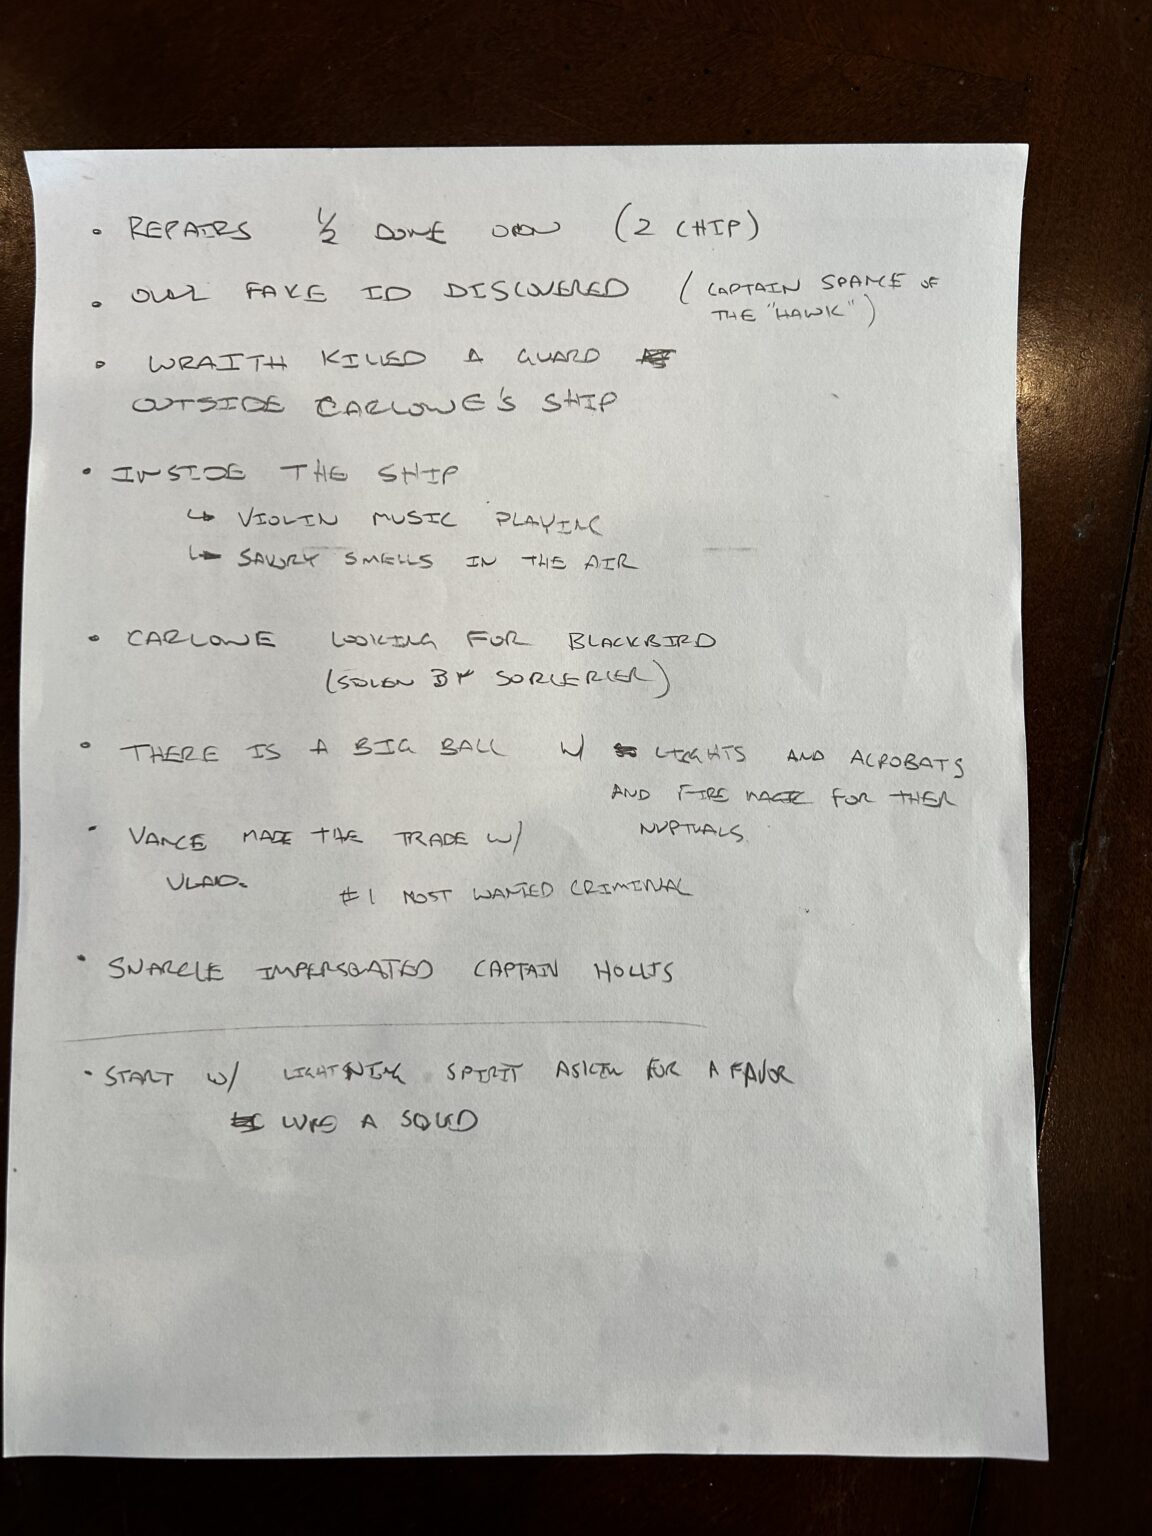 • REPAIRS 1/2 DONE (2 CHIP)
• OUR FAKE ID DISCOVERED (CAPTAIN SPANCE OF
THE "HAWK")
• WRAITH KILLED A GUARD
OUTSIDE CARLOWE'S SHIP
• INSIDE THE SHIP
↳ VIOLIN MUSIC PLAYING
↳ SAVORY SMELLS IN THE AIR
• CARLOWE LOOKING FOR BLACKBIRD
(SOLEN BY SORCERIER)
• THERE IS A BIG BALL W/ LIGHTS AND ACROBATS
AND FIRE MAGIC FOR THER
NUPTUALS
• VANCE MADE THE TRADE W/
VLAD.
#1 MOST WANTED CRIMINAL
• SNARCLE IMPERSONATED CAPTAIN HOLLIS
• START W/ LIGHTNING SPIRIT ASKIN FOR A FAVOR
LIKE A SQUID